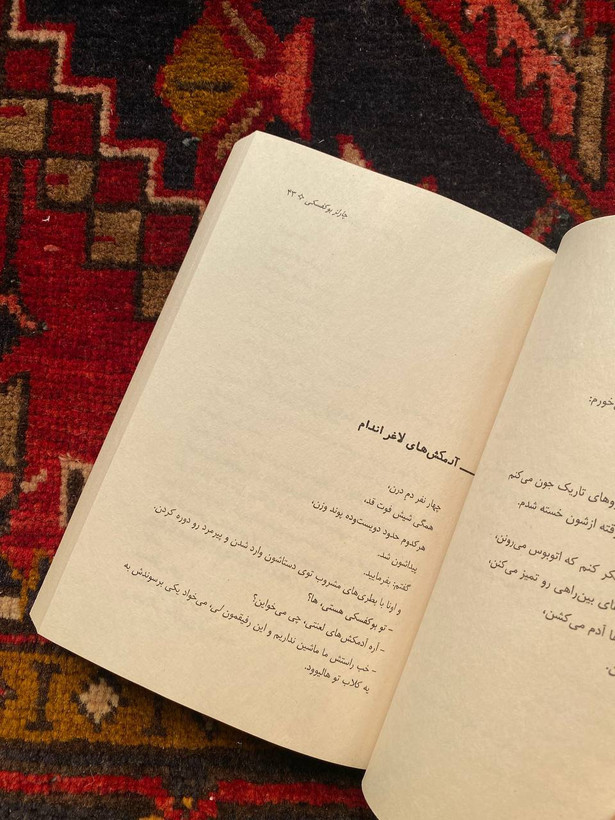 چارلز بوکفسکی ❖ ۴۳
آدمکش‌های لاغر اندام
چهار نفر دم درن،
همگی شیش فوت قد،
هرکدوم حدود دویست‌وده پوند وزن،
پیداشون شد.
گفتم: بفرمایید.
و اونا با بطری‌های مشروب توی دستاشون وارد شدن و پیرمرد رو دوره کردن.
- تو بوکفسکی هستی، ها؟
- آره آدمکش‌های لعنتی، چی می‌خواین؟
- خب راستش ما ماشین نداریم و این رفیقمون لی، می‌خواد یکی برسوندش به
یه کلاب تو هالیوود.
خورم:
روهای تاریک جون می‌کنم
ازشون خسته شدم.
کنم که اتوبوس می‌رونن،
بین‌راهی رو تمیز می‌کنن،
آدم می‌کشن،